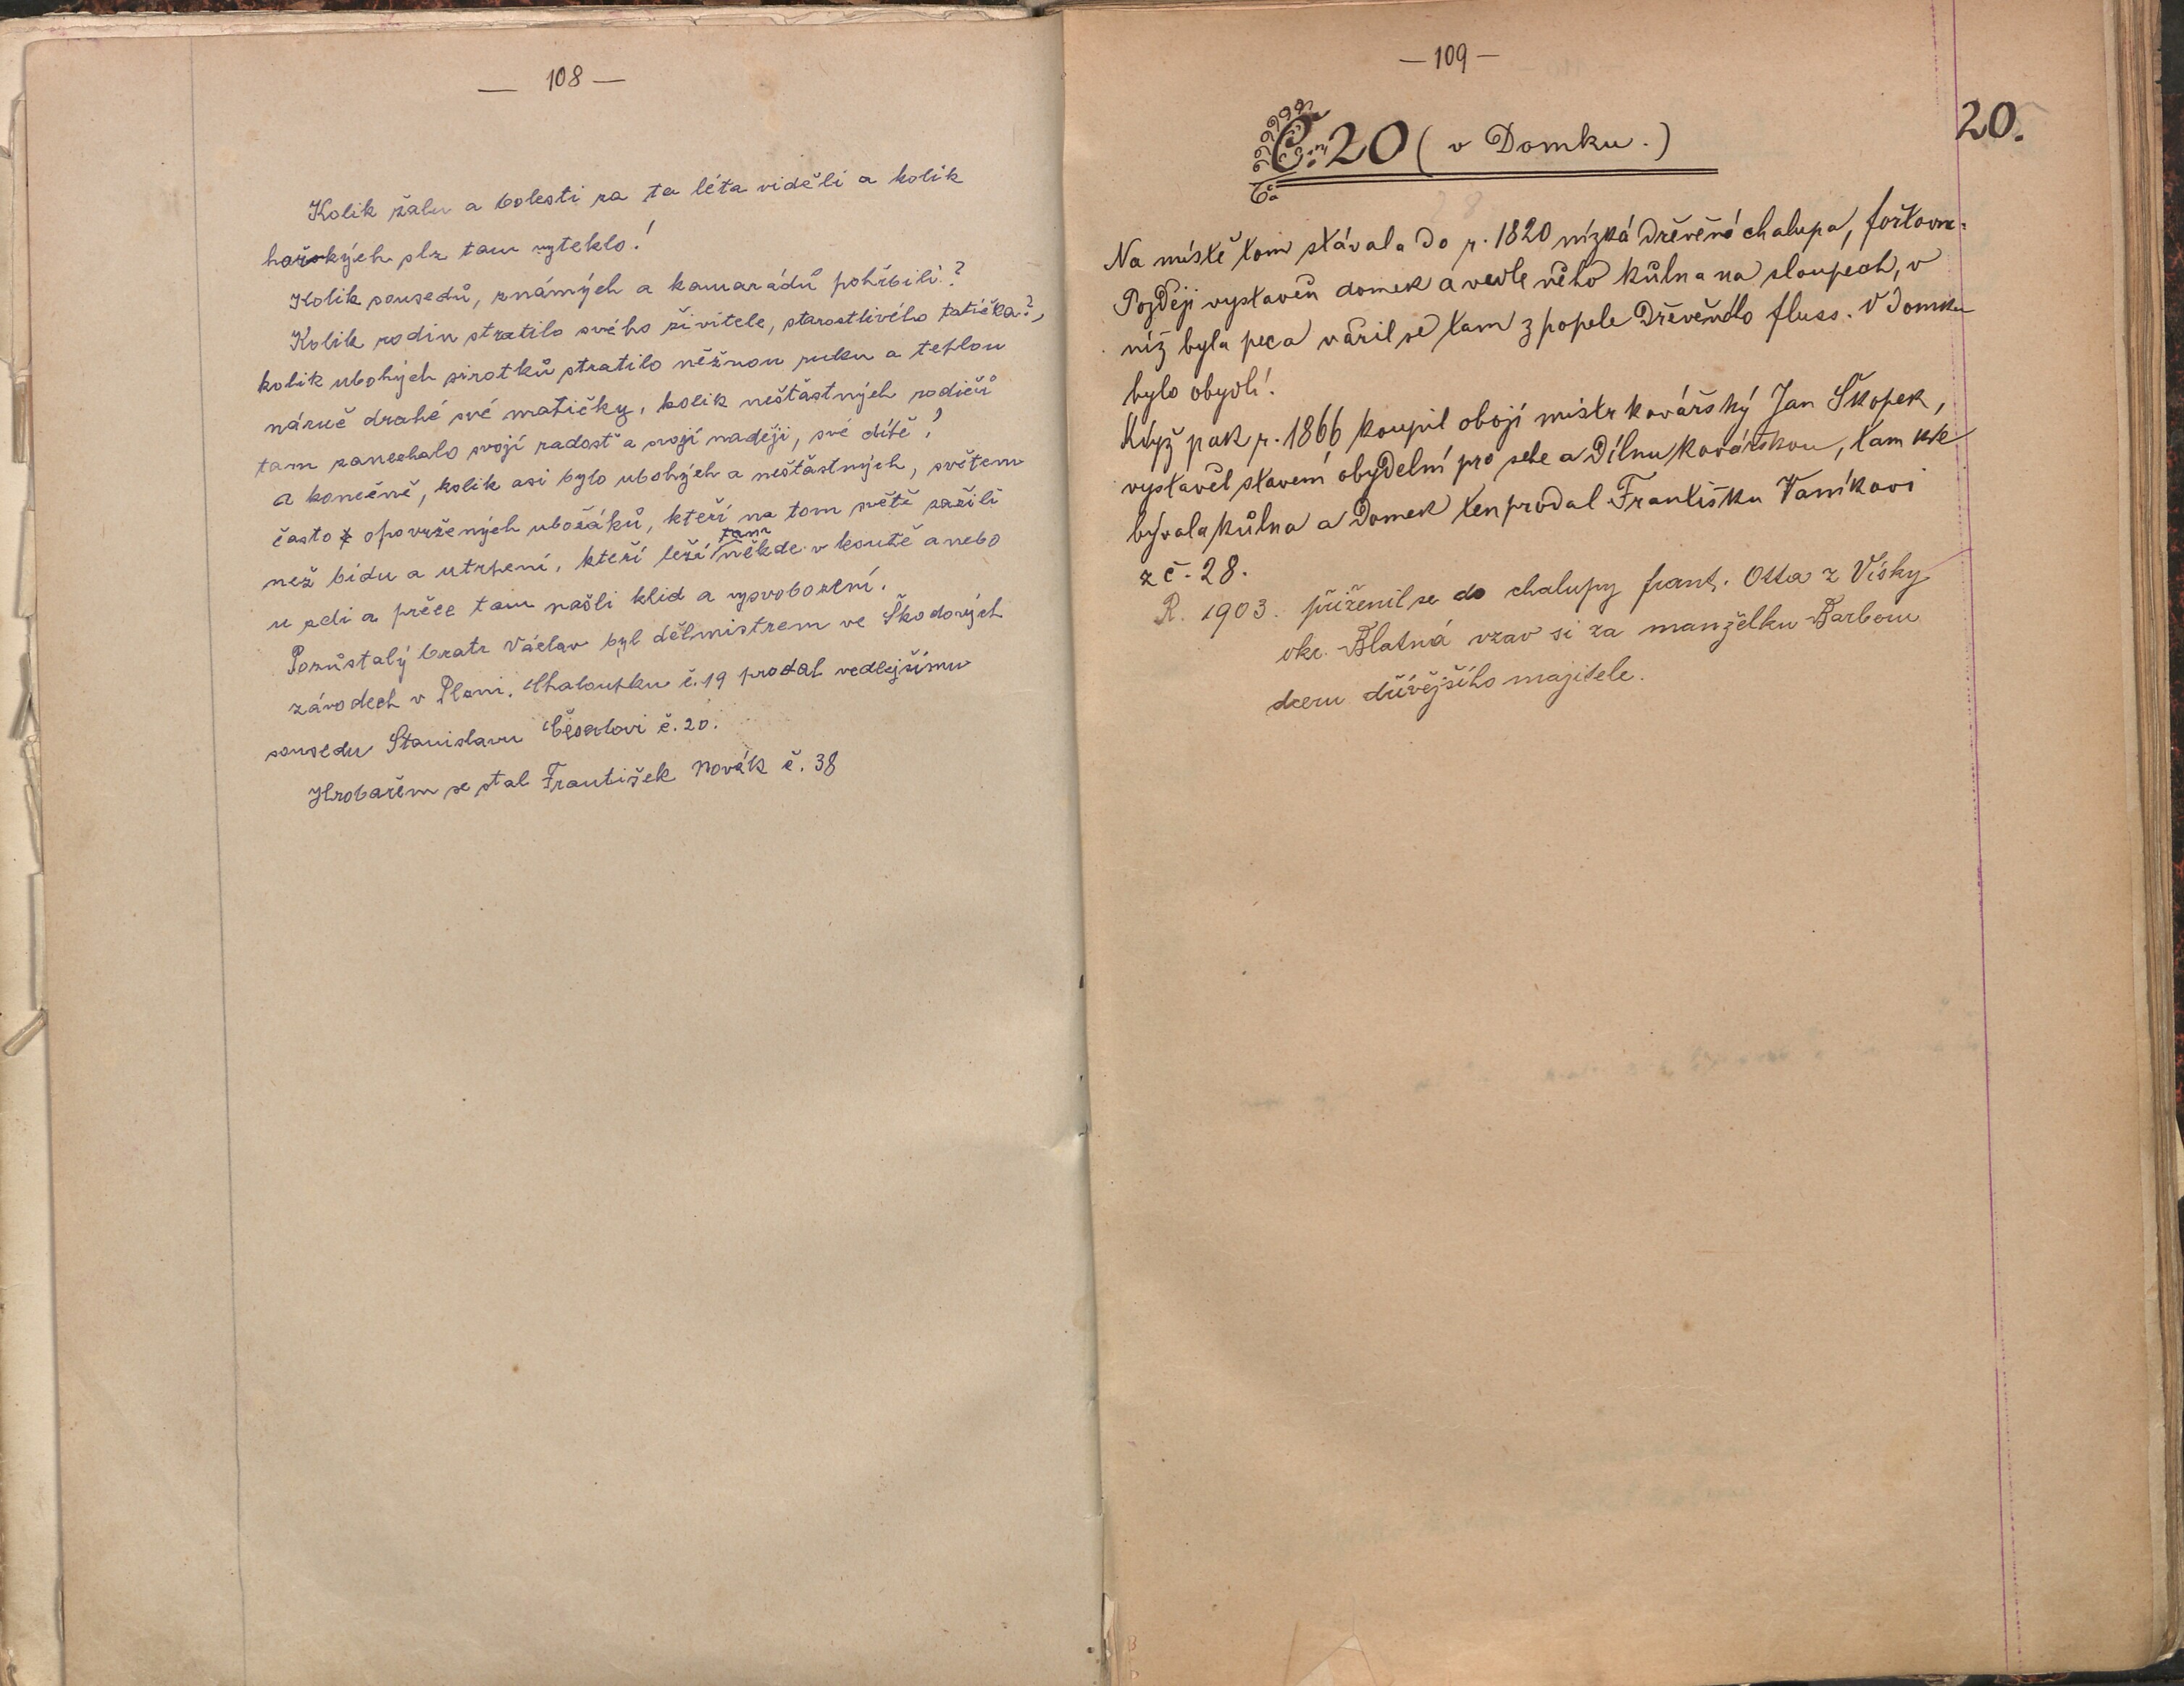 — 108 —
Kolik žalu a bolesti za ta léta viděli a kolik
hořkých slz tam vyteklo!
Kolik sousedů, známých a kamarádů pohřbili?
Kolik rodin stratilo svého živitele, starostlivého tatíčka?,
kolik ubohých sirotků stratilo něžnou ruku a teplou
náruč drahé své matičky, kolik nešťastných rodičů
tam zanechalo svojí radost a svojí naději, své dítě!
A konečně, kolik asi bylo ubohých a nešťastných, světem
často opovržených ubožáků, kteří na tom světě zažili
než bídu a utrpení, kteří leží tam někde v koutě anebo
u zdi a přece tam našli klid a vysvobození.
Pozůstalý bratr Václav byl dělmistrem ve Škodových
závodech v Plzni. Chaloupku č. 19 prodal vedlejšímu
sousedu Stanislavu č. 20.
Hrobařem se stal František Novák č. 38
— 109 —
20.
Č. 20 (v Domku.)
Na místě tom stávala do r. 1820 nízká dřevěná chalupa,
Později vystavěn domek a vedle něho kůlna na sloupech, v
níž byla pec a vařil se tam z popele dřevěného fluss. V domku
bylo obydlí.
Když pak r. 1866 koupil obojí mistr kovářský Jan Škopek,
vystavěl stavení obydelní pro sebe a dílnu kovářskou, tam kde
bývala kůlna a domek ten prodal Františku Vaníkovi
z č. 28.
R. 1903. přiženil se do chalupy frant. Otta z Vísky
okr. Blatná vzav si za manželku Barboru
dceru dřívějšího majitele.